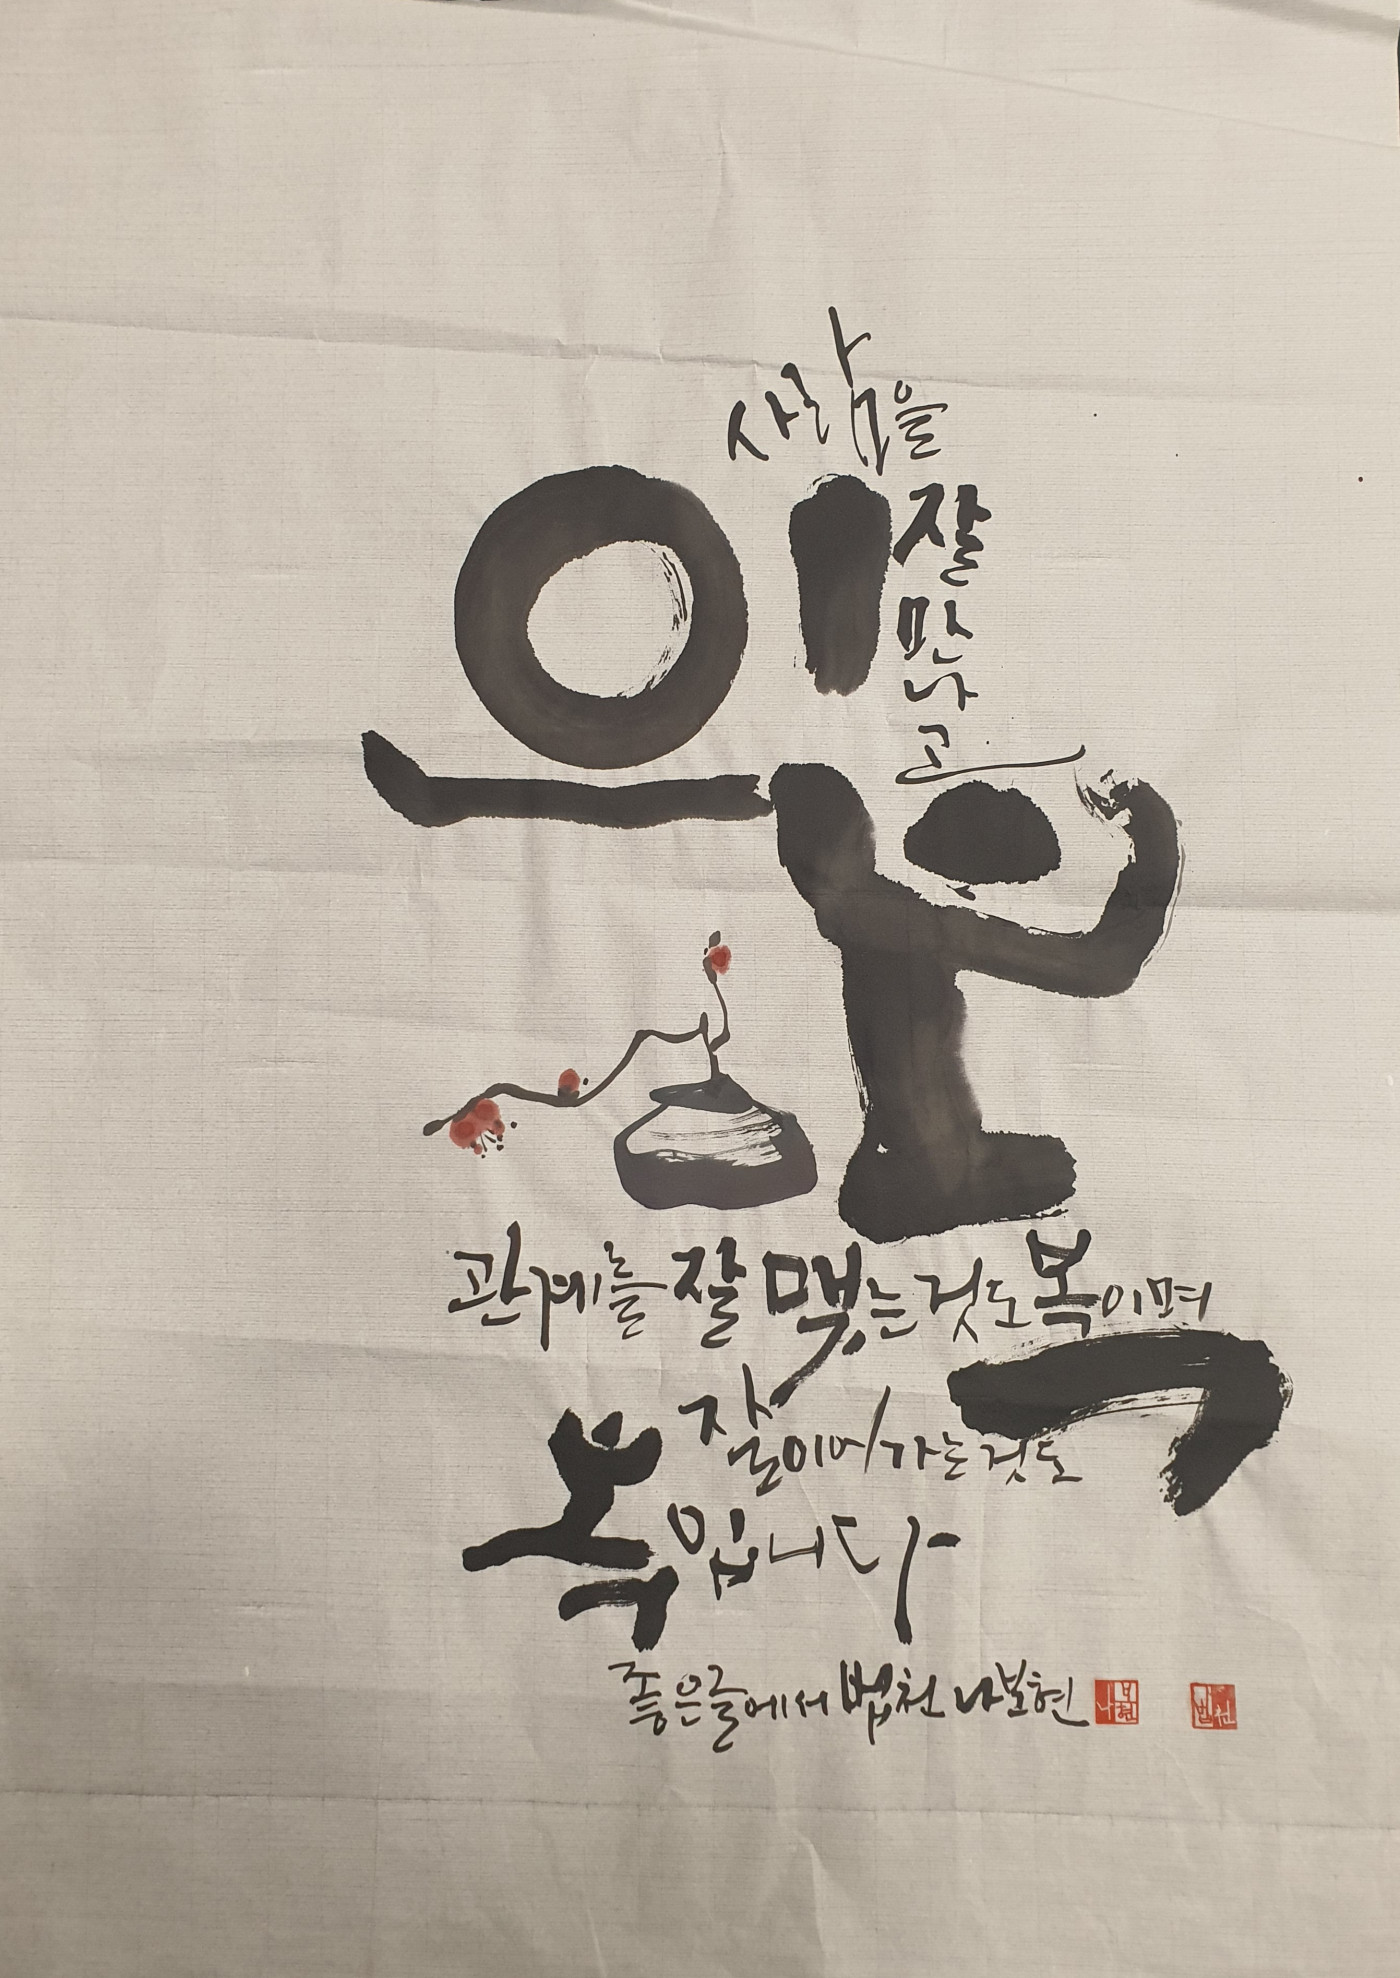 인복
사람을
잘
만
나
고
관계를 잘 맺는 것도 복이며
잘 이어가는 것도
복입니다
좋은글에서 법천 나보현
나보현
법천